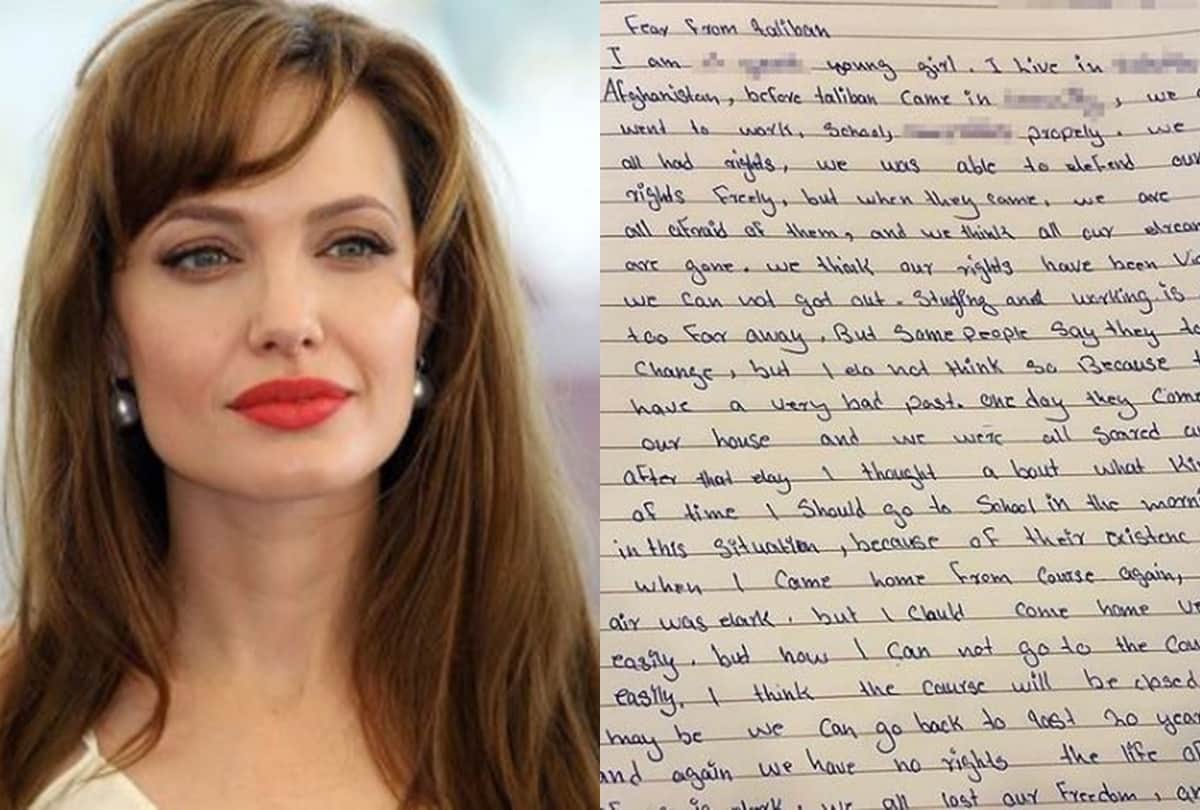 Fear from taliban
I am young girl. I live in
Afghanistan, before taliban came in , we
went to work, School, propely. we
all had rights, we was able to defend our
rights Freely, but when they came, we are
all afraid of them, and we think all our dream
are gone. we think our rights have been Vio
we can not got out. Studing and working is
too far away. But Some people Say they
Change, but I do not think so Because
have a very bad past. one day they Come
our house and we were all Scared
after that day I thought a bout what kin
of time I Should go to School in the morn
in this situation, because of their existenc
when I Came home from Course again,
air was dark. but I Clould come home
easily. but how I can not go to the Cou
easily. I think the Course will be closed
may be we Can go back to last 20 year
and again we have no rights the life
is dark. we all lost our Freedom,